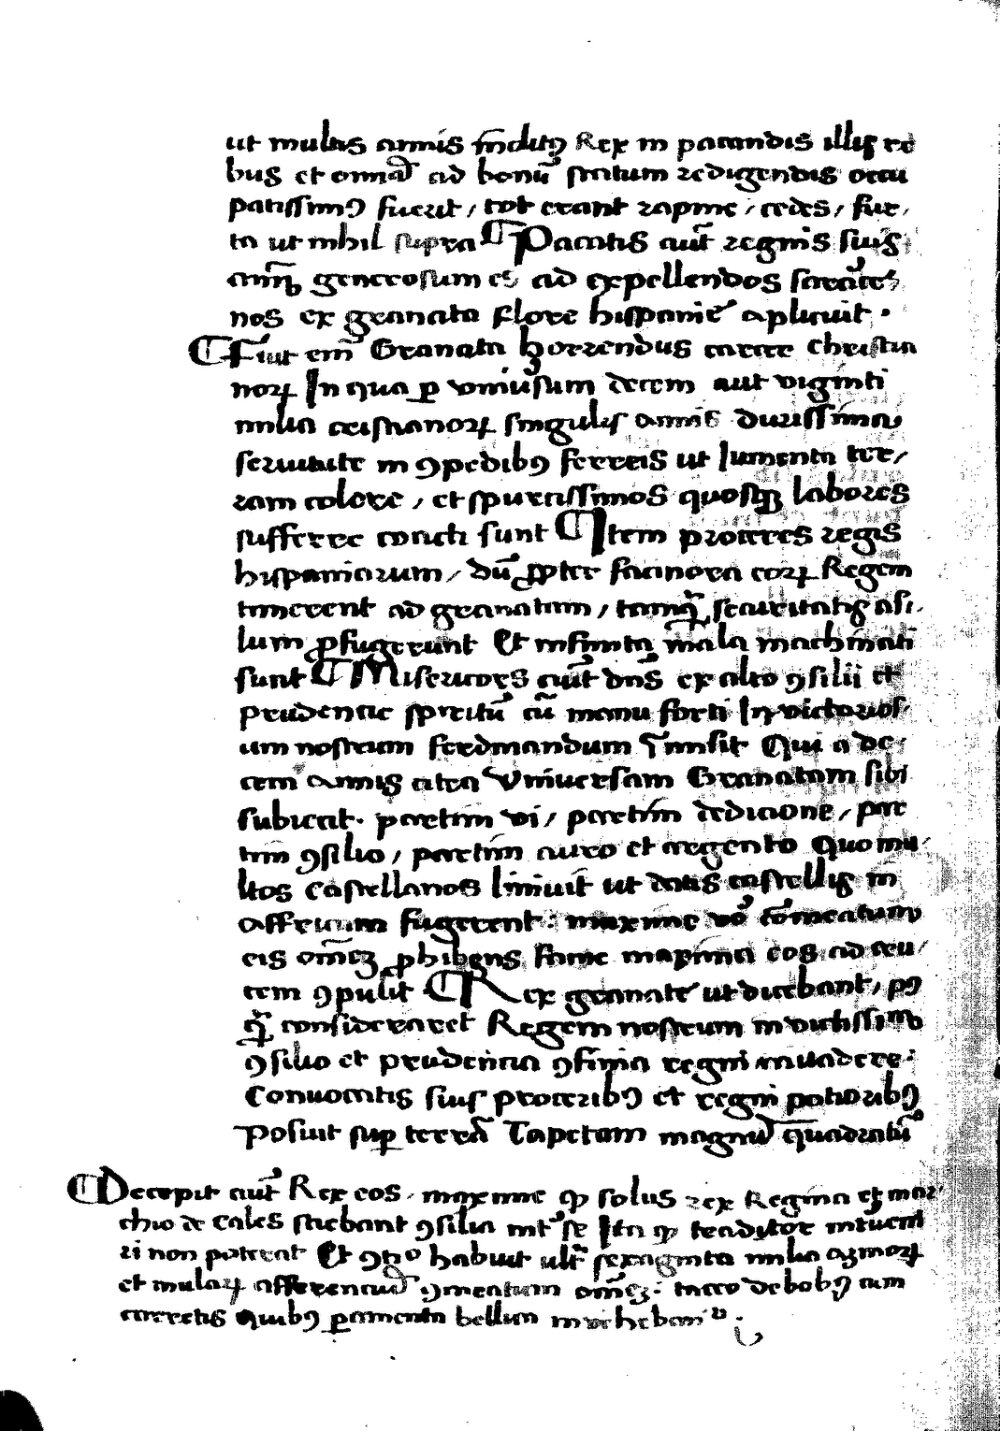 ut multis annis inclitꝯ Rex in pacandis illis re
bus et omniā ad bonū statum redigendis occu
patissimꝯ fuerit / tot erant rapine / cedes / fur/
ta ut nihil supra ¶ Pacatis aut̄ regnis suis
animū generosum et ad expellendos sarace/
nos ex granata flore hispanie aplicuit ·
¶ Fuit em̄ Granata horrendus carcer christia
noꝝ In qua ꝑ universum decem aut viginti
milia cristianoꝝ singulis annis durissima
servitute in ꝯpedibꝯ ferreis ut Iumenta ter/
ram colere / et spurcissimos quosqꝫ labores
sufferre coacti sunt ¶ Item proceres regis
hispaniarum / dū ꝓpter facinora eoꝝ Regem
timerent ad granatam / tamqͣꝫ securitatis asi/
lum ꝓfugerunt Et infinita mala machinati
sunt ¶ Misericors aut̄ dn̄s ex alto ꝯsilii et
prudencie spiritū cū manu forti In victorios/
um nostrum ferdinandum īmisit Qui a de/
cem annis citra Universam Granatam sibi
subiecit · partim vi / partim dedicione / par
tim ꝯsilio / partim auro et argento Quo mu/
ltos Castellanos linivit ut datis castellis in
affricam fugerent : maxime vō cōmeatum
eis om̄eꝫ ꝓhibens fame maxima eos ad cru/
cem ꝯpulit ¶ Rex granate ut dicebant / pꝯ
qͣꝫ consideraret Regem nostrum invictissimo
ꝯsilio et prudencia ꝯfinia regni invadere :
Convocatis suis proceribꝯ et regni potioribꝯ
Posuit suꝑ terrā Tapetam magnū quadratū
¶ Decepit aut̄ Rex eos · maxime ꝙ solus rex Regina et mar/
chio de Cales sciebant ꝯsilia int̄ se Ita ꝙ traditor inveni
ri non poterat Et ꝯtō habuit ult̄ sexaginta milia asinoꝝ
et mulaꝝ afferenciū ꝯmeatum om̄eꝫ : taceo de bobꝯ cum
carretis Quibꝯ ꝑamenta bellica invehebant᷑ ·